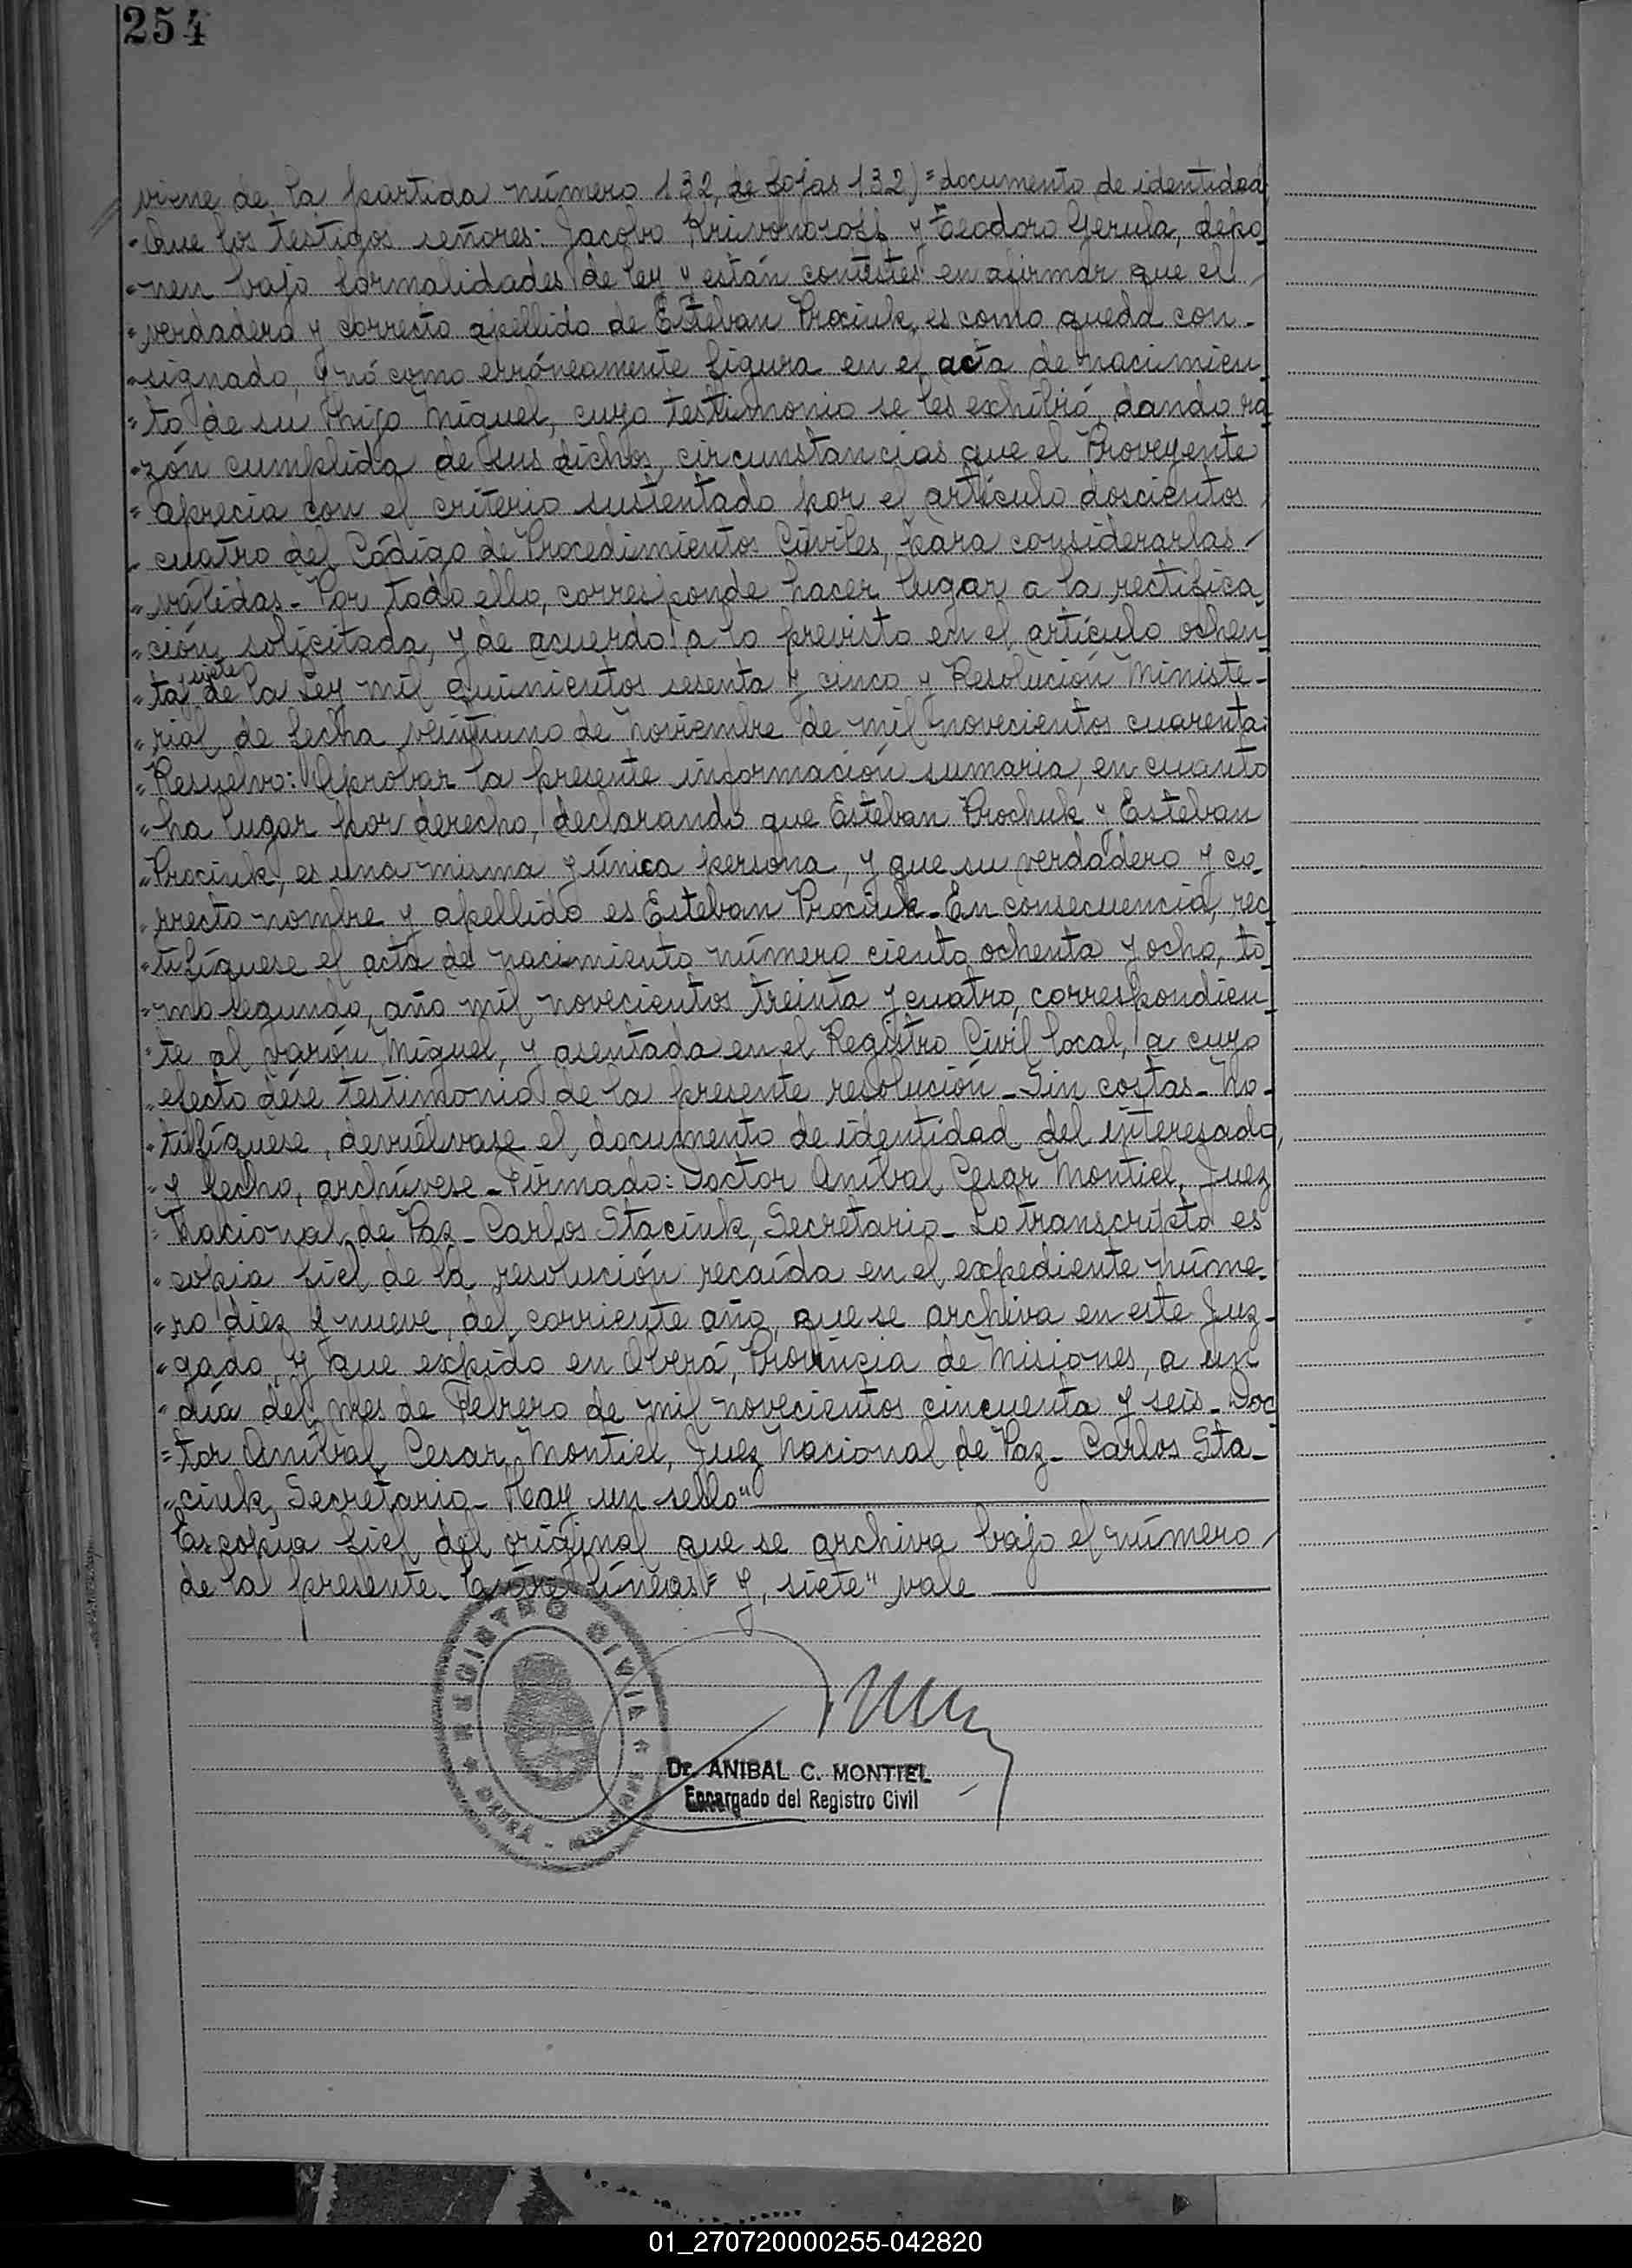 254
viene de la partida número 132, de fojas 132) "documento de identidad
"Que los testigos señores: Jacobo Krivonoroff y Teodoro Yerula, depo-
"nen bajo formalidades de ley y están contestes en afirmar que el
"verdadero y correcto apellido de Esteban Prociuk, es como queda con-
"signado, y nó como erróneamente figura en el acta de nacimien-
"to de su hijo Miguel, cuyo testimonio se les exhibió, dando ra-
"zón cumplida de sus dichos, circunstancias que el Proveyente
"aprecia con el criterio sustentado por el artículo doscientos
"cuatro del Código de Procedimientos Civiles, para considerarlas
"válidas- Por todo ello, corresponde hacer lugar a la rectifica-
"ción solicitada, y de acuerdo a lo previsto en el artículo ochen-
siete
"ta y de la Ley mil quinientos sesenta y cinco y Resolución Ministe-
"rial de fecha veintiuno de noviembre de mil novecientos cuarenta:
"Resuelvo: Aprobar la presente información sumaria, en cuanto
"ha lugar por derecho, declarando que Esteban Prochuk y Esteban
"Prociuk, es una misma y única persona, y que su verdadero y co-
"rrecto nombre y apellido es Esteban Prociuk- En consecuencia, rec-
"tifíquese el acta de nacimiento número ciento ochenta y ocho, to-
"mo segundo, año mil novecientos treinta y cuatro, correspondien-
"te al varón Miguel, y asentada en el Registro Civil local, a cuyo
"efecto dése testimonio de la presente resolución- Sin costas- No-
"tifíquese, devuélvase el documento de identidad del interesado,
"y fecho, archívese- Firmado: Doctor Aníbal Cesar Montiel, Juez
"Nacional de Paz- Carlos Staciuk, Secretario- Lo transcripto es
"copia fiel de la resolución recaída en el expediente núme-
"ro diez y nueve, del corriente año, que se archiva en este Juz-
"gado, y que expido en Oberá, Provincia de Misiones, a un
"día del mes de Febrero de mil novecientos cincuenta y seis- Doc-
"tor Aníbal Cesar Montiel, Juez Nacional de Paz- Carlos Sta-
"ciuk, Secretario- Hay un sello"
Es copia fiel del original que se archiva bajo el número
de la presente- Entre líneas: "y, siete" vale
REGISTRO CIVIL
Dr. ANIBAL C. MONTIEL
Encargado del Registro Civil
01_270720000255-042820